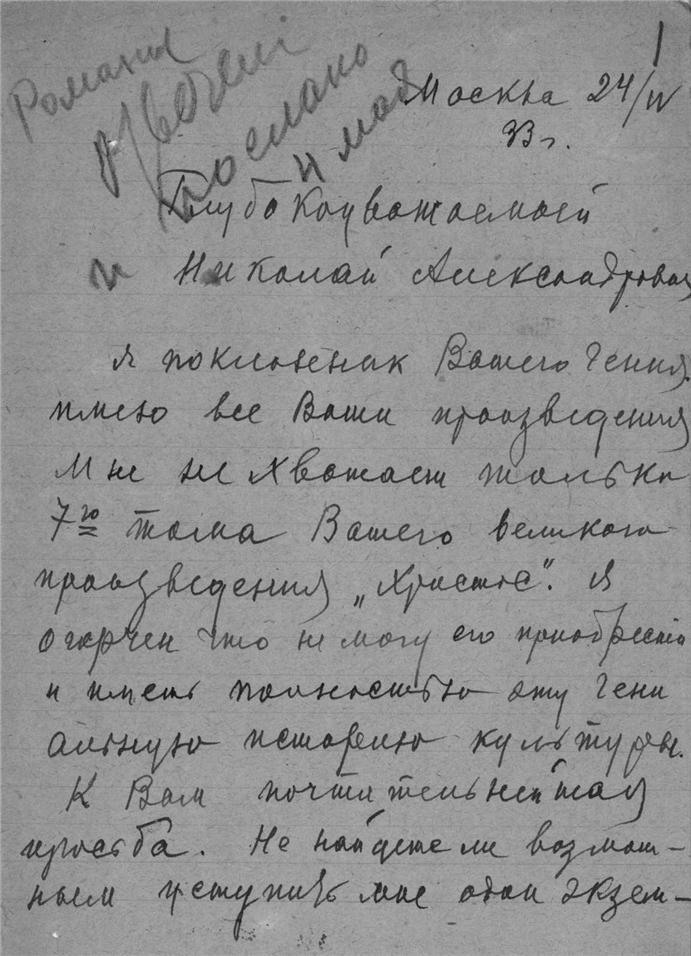 1
Романия
Отвечено
Послано
и
Москва 24/IV
33 г.
Глубокоуважаемый
Николай Александрович
Я поклоненик Вашего Гения,
имею все Ваши произведения
Мне не хватает только
7го тома Вашего великого
произведения „Христос“. Я
огорчен что не могу его приобрести
и иметь полностью эту гени
альную историю культуры.
К Вам почтительнейшая
просьба. Не найдете ли возмож–
ным уступить мне один экзем–